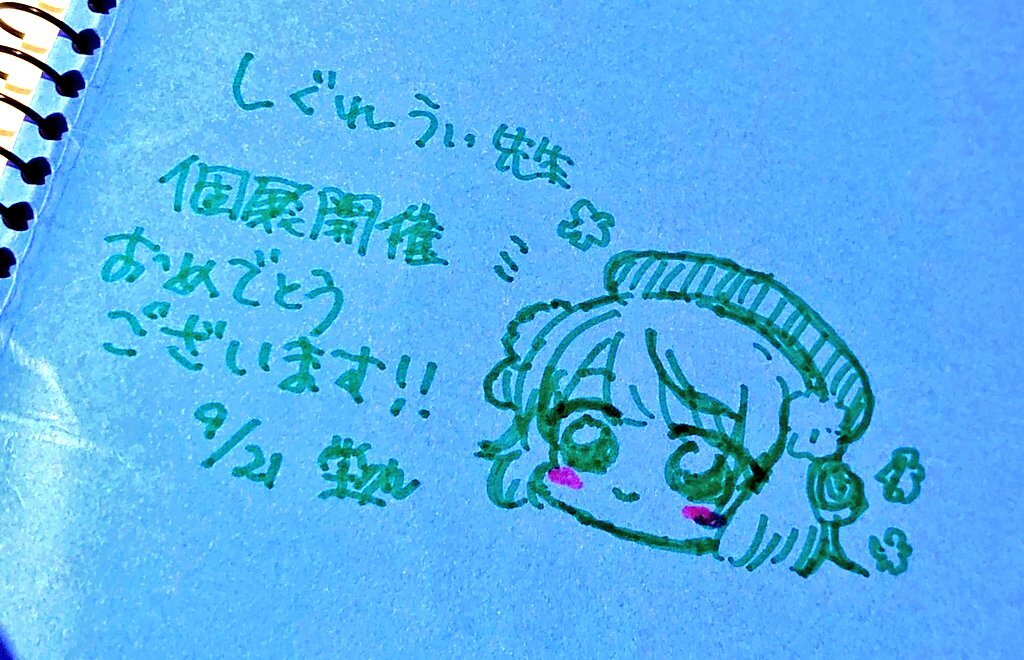 しぐれうい先生
個展開催
おめでとう
ございます!!
9/21